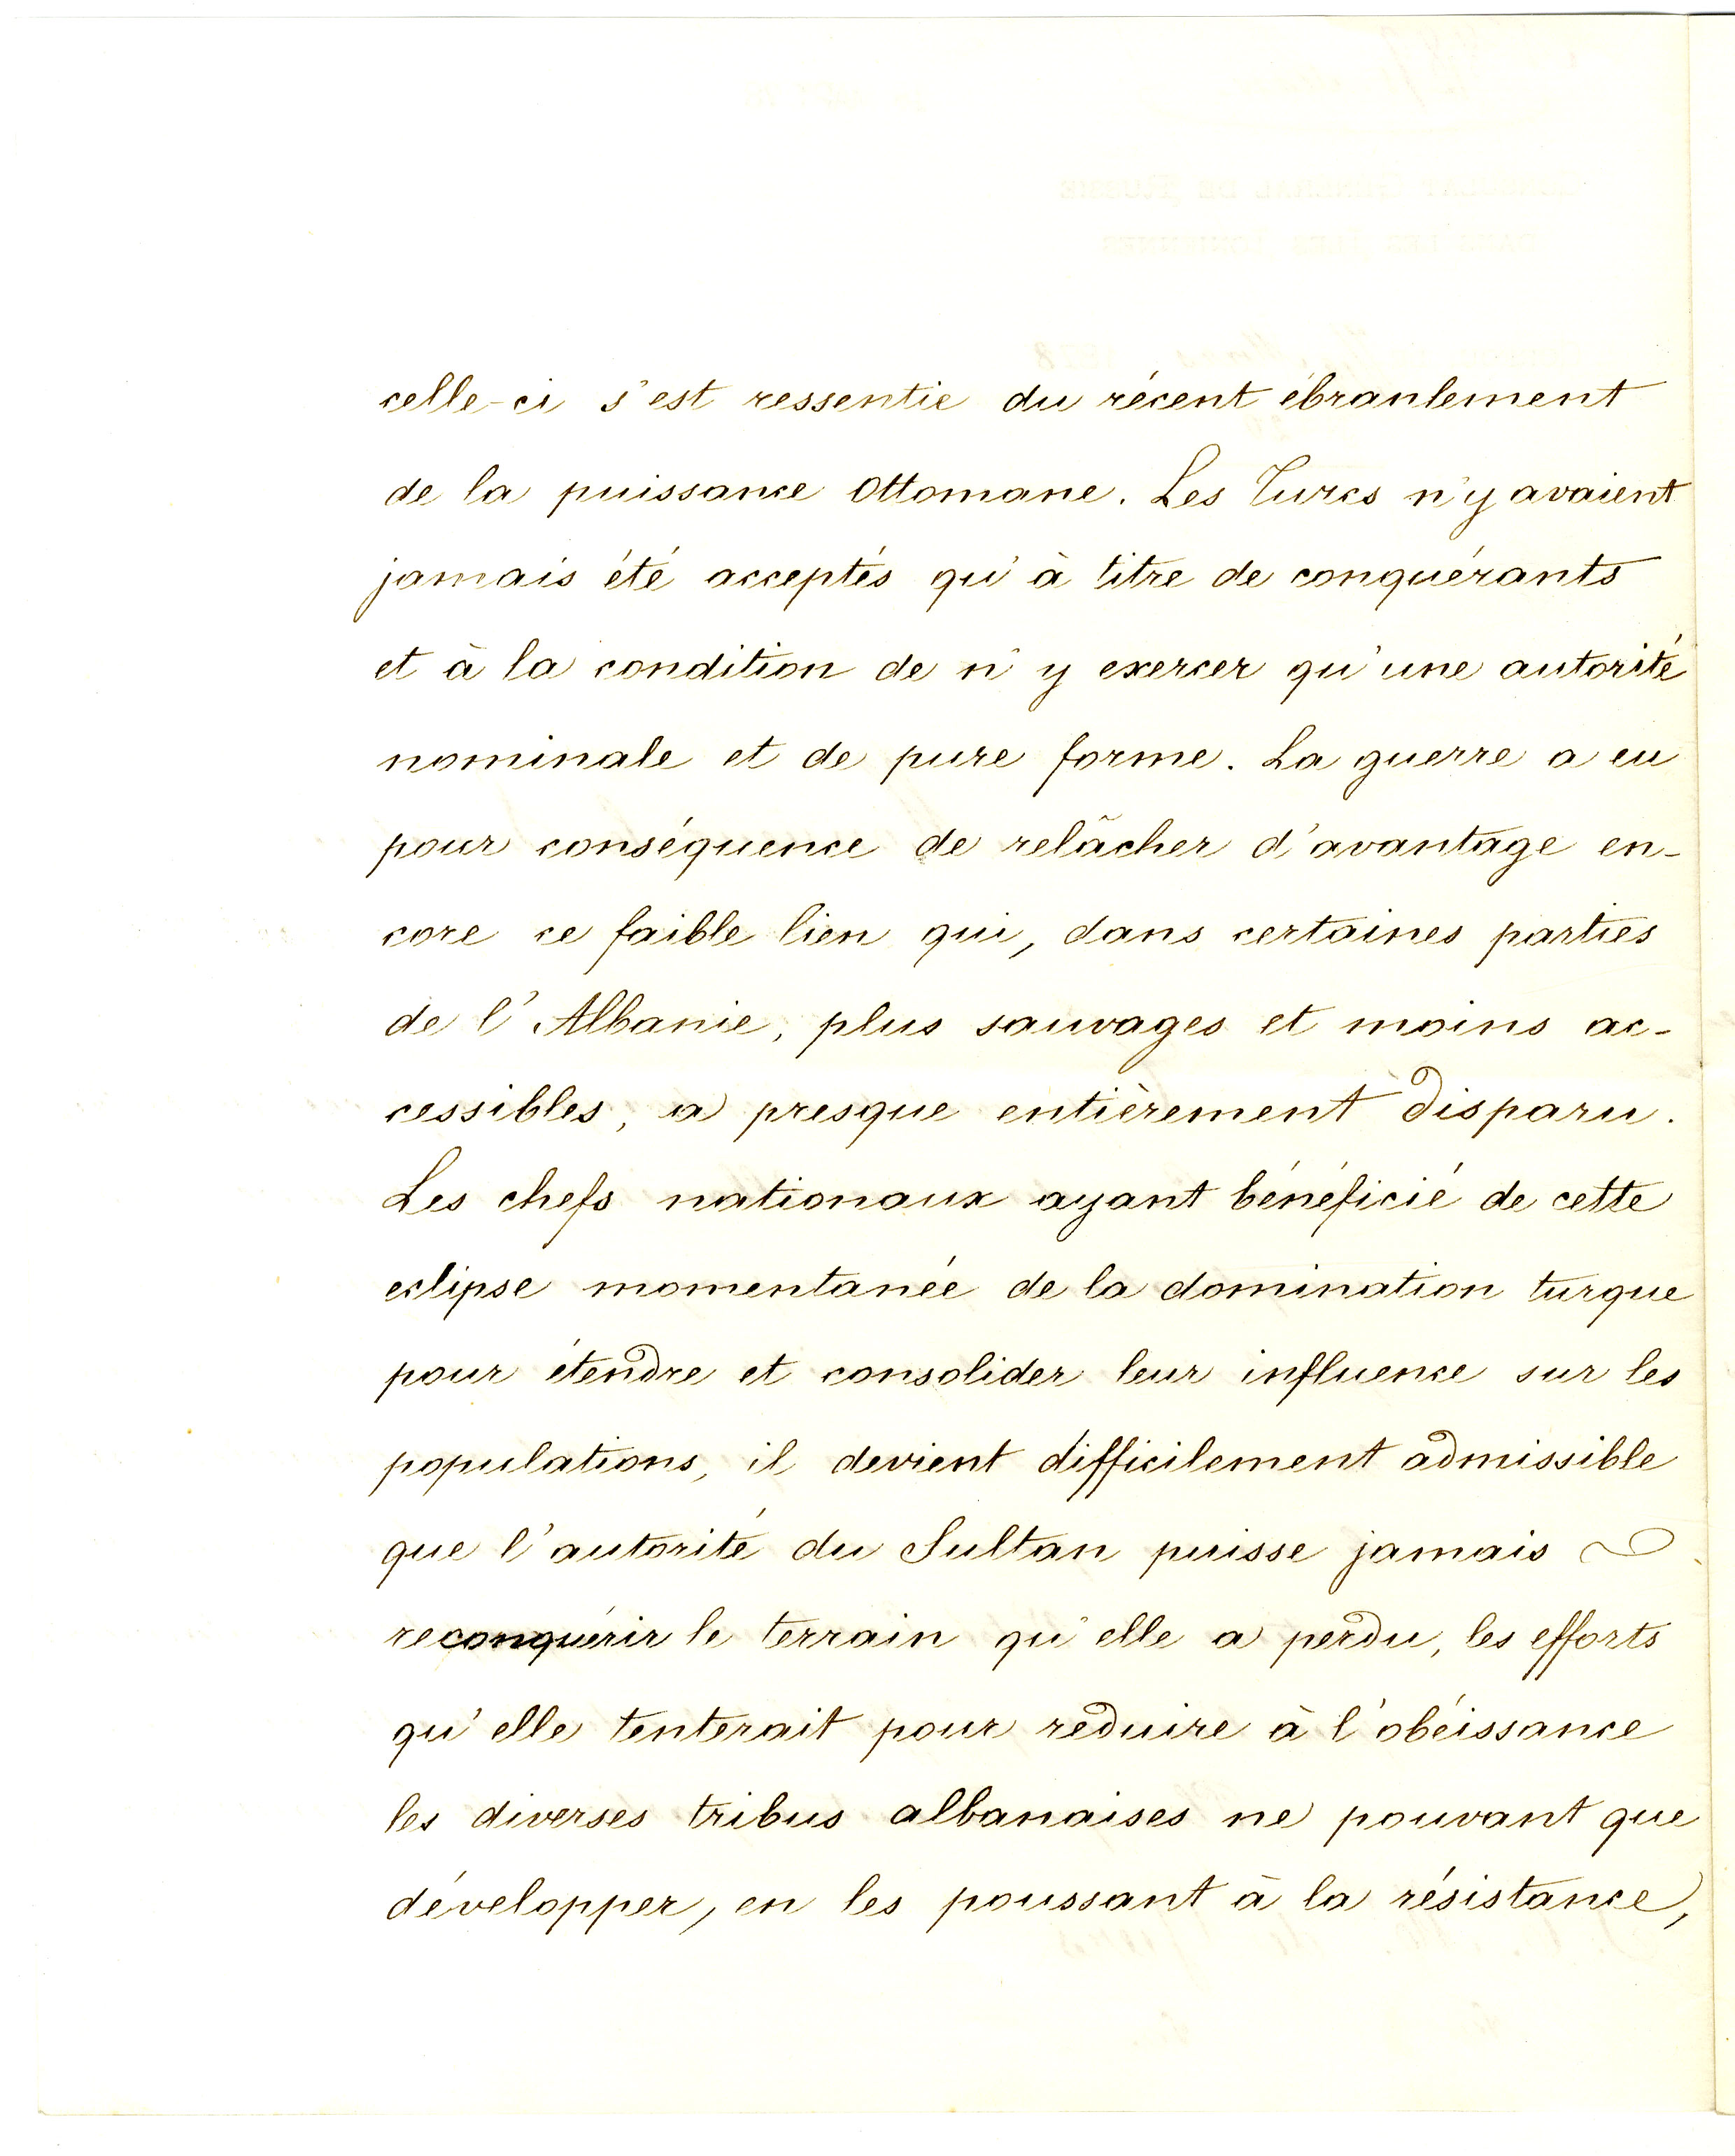 celle-ci s'est ressentie du récent ébranlement
de la puissance Ottomane. Les Turcs n'y avaient
jamais été acceptés qu'à titre de conquérants
et à la condition de n'y exercer qu'une autorité
nominale et de pure forme. La guerre a eu
pour conséquence de relâcher d'avantage en-
core ce faible lien qui, dans certaines parties
de l'Albanie, plus sauvages et moins ac-
cessibles, a presque entièrement disparu.
Les chefs nationaux ayant bénéficié de cette
eclipse momentanée de la domination turque
pour étendre et consolider leur influence sur les
populations, il devient difficilement admissible
que l'autorité du Sultan puisse jamais
reconquérir le terrain qu'elle a perdu, les efforts
qu'elle tenterait pour réduire à l'obéissance
les diverses tribus albanaises ne pouvant que
développer, en les poussant à la résistance,